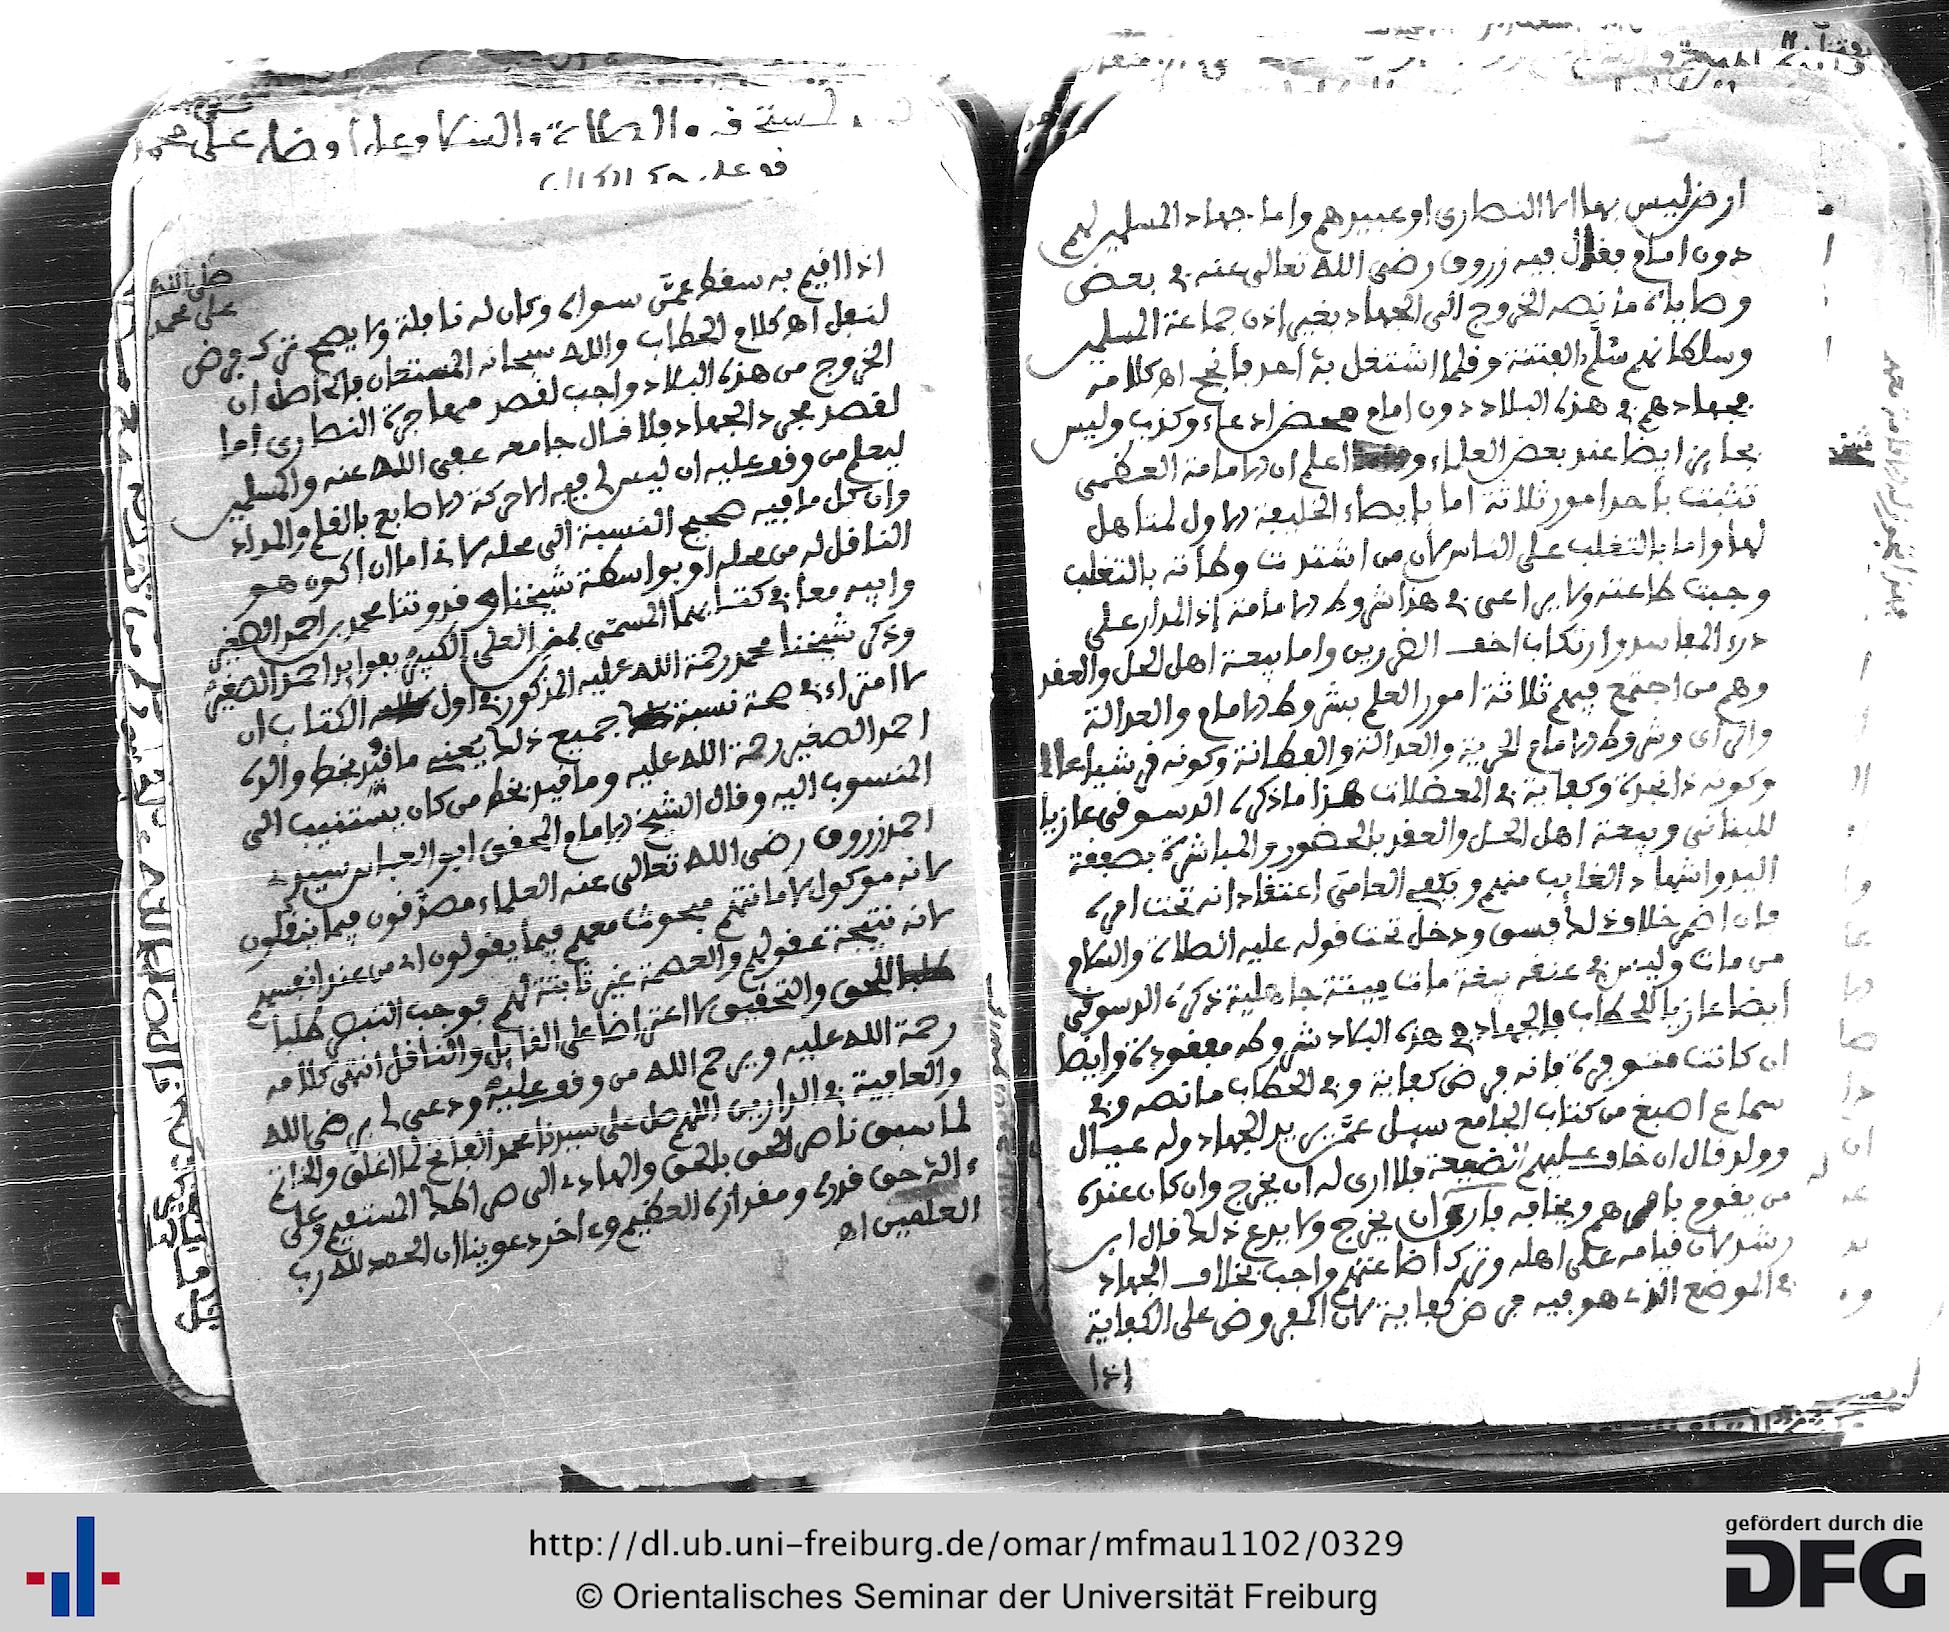 ارض ليس بها الا النصارى او عبيدهم واما جهاد المسلمين لهم
دون امام فقال فيه زروق رضي الله تعالى عنه في بعض
وصاياه ما نصه الخروج الى الجهاد بغير اذن جماعة المسلمين
وسلطانهم سلم الفتنة وقلما اشتغل به احد فانجح اه كلامه
فجهادهم في هذه البلاد دون امام محض ادعاء وكذب وليس
بجائز ايضا عند بعض العلماء اعلم ان الامامة العظمى
تثبت باحد امور ثلاثة اما بايصاء الخليفة الاول لمتاهل
لها واما بالتغلب على الناس لان من اشتدت وطاته بالتغلب
وجبت طاعته ولا يراعى في هذا شروط الامامة إذ المدار على
درء المفاسد وارتكاب اخف الضررين واما بيعة اهل الحل والعقد
وهم من اجتمع فيهم ثلاثة امور العلم بشروط الامام والعدالة
والراي وشروط الامام الحرية والعدالة والفطانة وكونه قرشيا
وكونه ذا نجدة وكفاية في المعضلات هذا ما ذكره الدسوقي عازيا
للبناني وبيعة اهل الحل والعقد بالحضور والمباشرة بصفقة
اليد واشهاد الغايب منهم ويكفي العامي اعتقاد انه تحت امره
فان اضمر خلاف ذلك فسق ودخل تحت قوله عليه الصلاة والسلام
من مات وليس في عنقه بيعة مات ميتة جاهلية ذكره الدسوقي
ايضا عازيا للحطاب فالجهاد في هذه البلاد شروطه مفقودة وايضا
ان كانت متوفرة فانه فرض كفاية وفي الحطاب ما نصه وفي
سماع اصبغ من كتاب الجامع سيل عمن يريد الجهاد وله عيال
وولد قال ان خاف عليهم الضيعة فلا ارى له ان يخرج وان كان عنده
من يقوم بامرهم ويخلفه فارى ان يخرج ولا يدع ذلك قال ابن
رشد لان قيامه على اهله وترك اضاعتهم واجب بخلاف الجهاد
في الموضع الذي هو فيه فرض كفاية لان المفروض على الكفاية
إذا
صلى الله
على محمد
اذا اقيم به سقط عمن سواه وكان له نافلة ولا يصح ترك فرض
لنفل اه كلام الحطاب والله سبحانه المستعان فالحاصل ان
الخروج من هذه البلاد واجب لقصد مهاجرة النصارى اما
لقصد مجرد الجهاد فلا قال جامعه عفى الله عنه والمسلمين
ليعلم من وقف عليه ان ليس لي فيه الا حركة الاصابع بالقلم والمداد
وان كل ما فيه صحيح النسبة الى محله لاني اما ان اكون هو
الناقل له من محله او بواسطة شيخنا وقدوتنا محمد بن احمد الصغير
وابيه معا في كتابيهما المسمى
وذكر شيخنا محمد رحمة الله عليه المذكور في اول الكتاب ان
لا امتراء في صحة نسبة جميع ذلك يعني ما قيد بخط والده
احمد الصغير رحمة الله عليه وما قيد بخط من كان يستنيب الى
المنسوب اليه وقال الشيخ الامام المحقق ابو العباس سيدي
احمد زروق رضي الله تعالى عنه العلماء مصدقون فيما ينقلون
لانه موكول لامانتهم مبحوث معهم فيما يقولون اي من عند انفسهم
لانه نتيجة عقولهم والعصمة غير ثابتة لهم فوجب التبصر طلبا
للحق والتحقيق لا اعتراضا على القايل والناقل انتهى كلامه
رحمة الله عليه ويرحم الله من وقف عليه ودعى لي برضى الله
والعافية في الدارين اللهم صل على سيدنا محمد الفاتح لما اغلق والخاتم
لما سبق ناصر الحق بالحق والهادي الى صراطك المستقيم وعلى
ءاله حق قدره ومقداره العظيم وءاخر دعوينا ان الحمد لله رب
العلمين اه
http://dl.ub.uni-freiburg.de/omar/mfmau1102/0329
© Orientalisches Seminar der Universität Freiburg
gefördert durch die
DFG